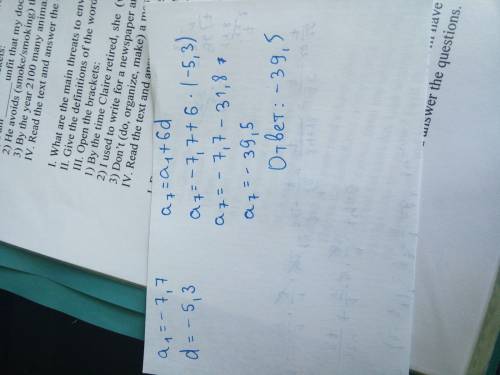 a₁ = -7,7
d = -5,3
a₇ = a₁ + 6d
a₇ = -7,7 + 6 · (-5,3)
a₇ = -7,7 - 31,8
a₇ = -39,5
Ответ: -39,5
unfit that my doc
2) He avoids (smoke/smoking) th
3) By the year 2100 many anima
IV. Read the text and answer the
I. What are the main threats to env
II. Give the definitions of the word
III. Open the brackets:
1) By the time Claire retired, she (
2) I used to write for a newspaper a
3) Don't (do, organize, make) a m
IV. Read the text and an
have
answer the questions.